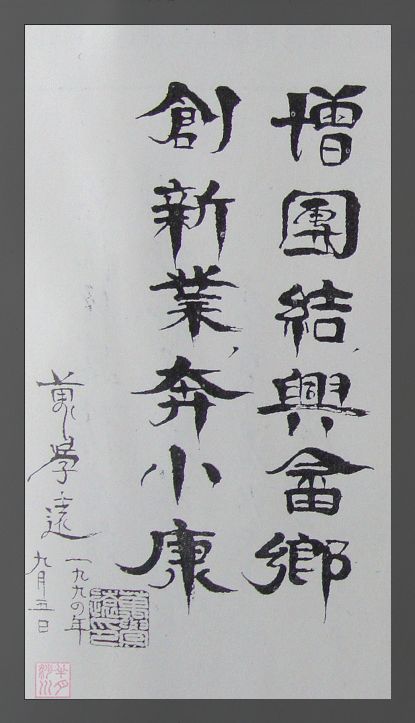 增團結興畲鄉
創新業奔小康
萬學遠
一九九四年
九月五日